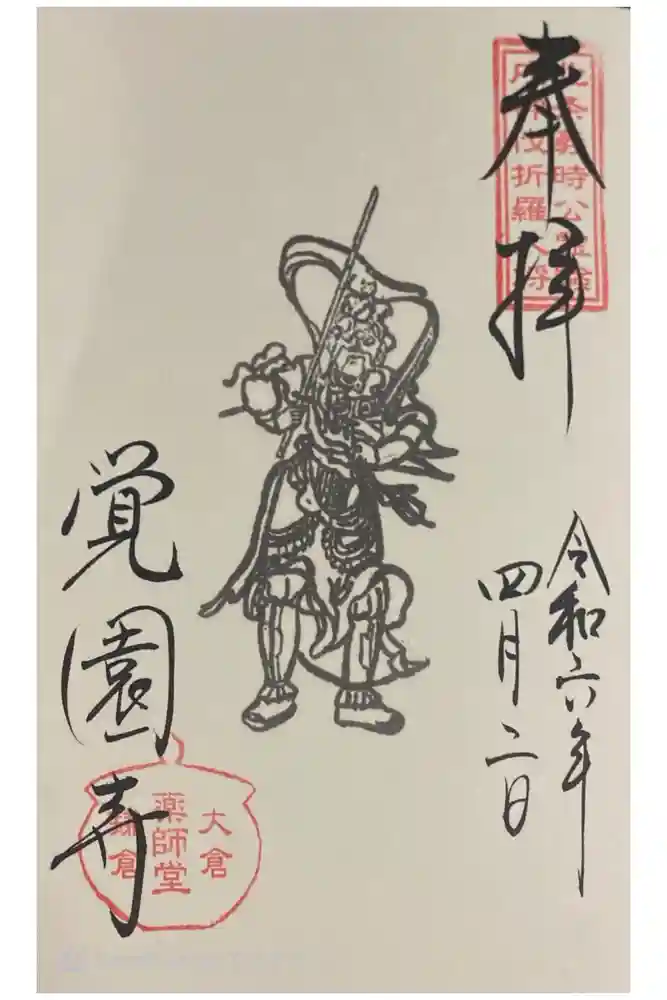 奉拝
北条義時公霊験
戌神伐折羅大将
令和六年
四月二日
覚園寺
大倉
薬師堂
鎌倉